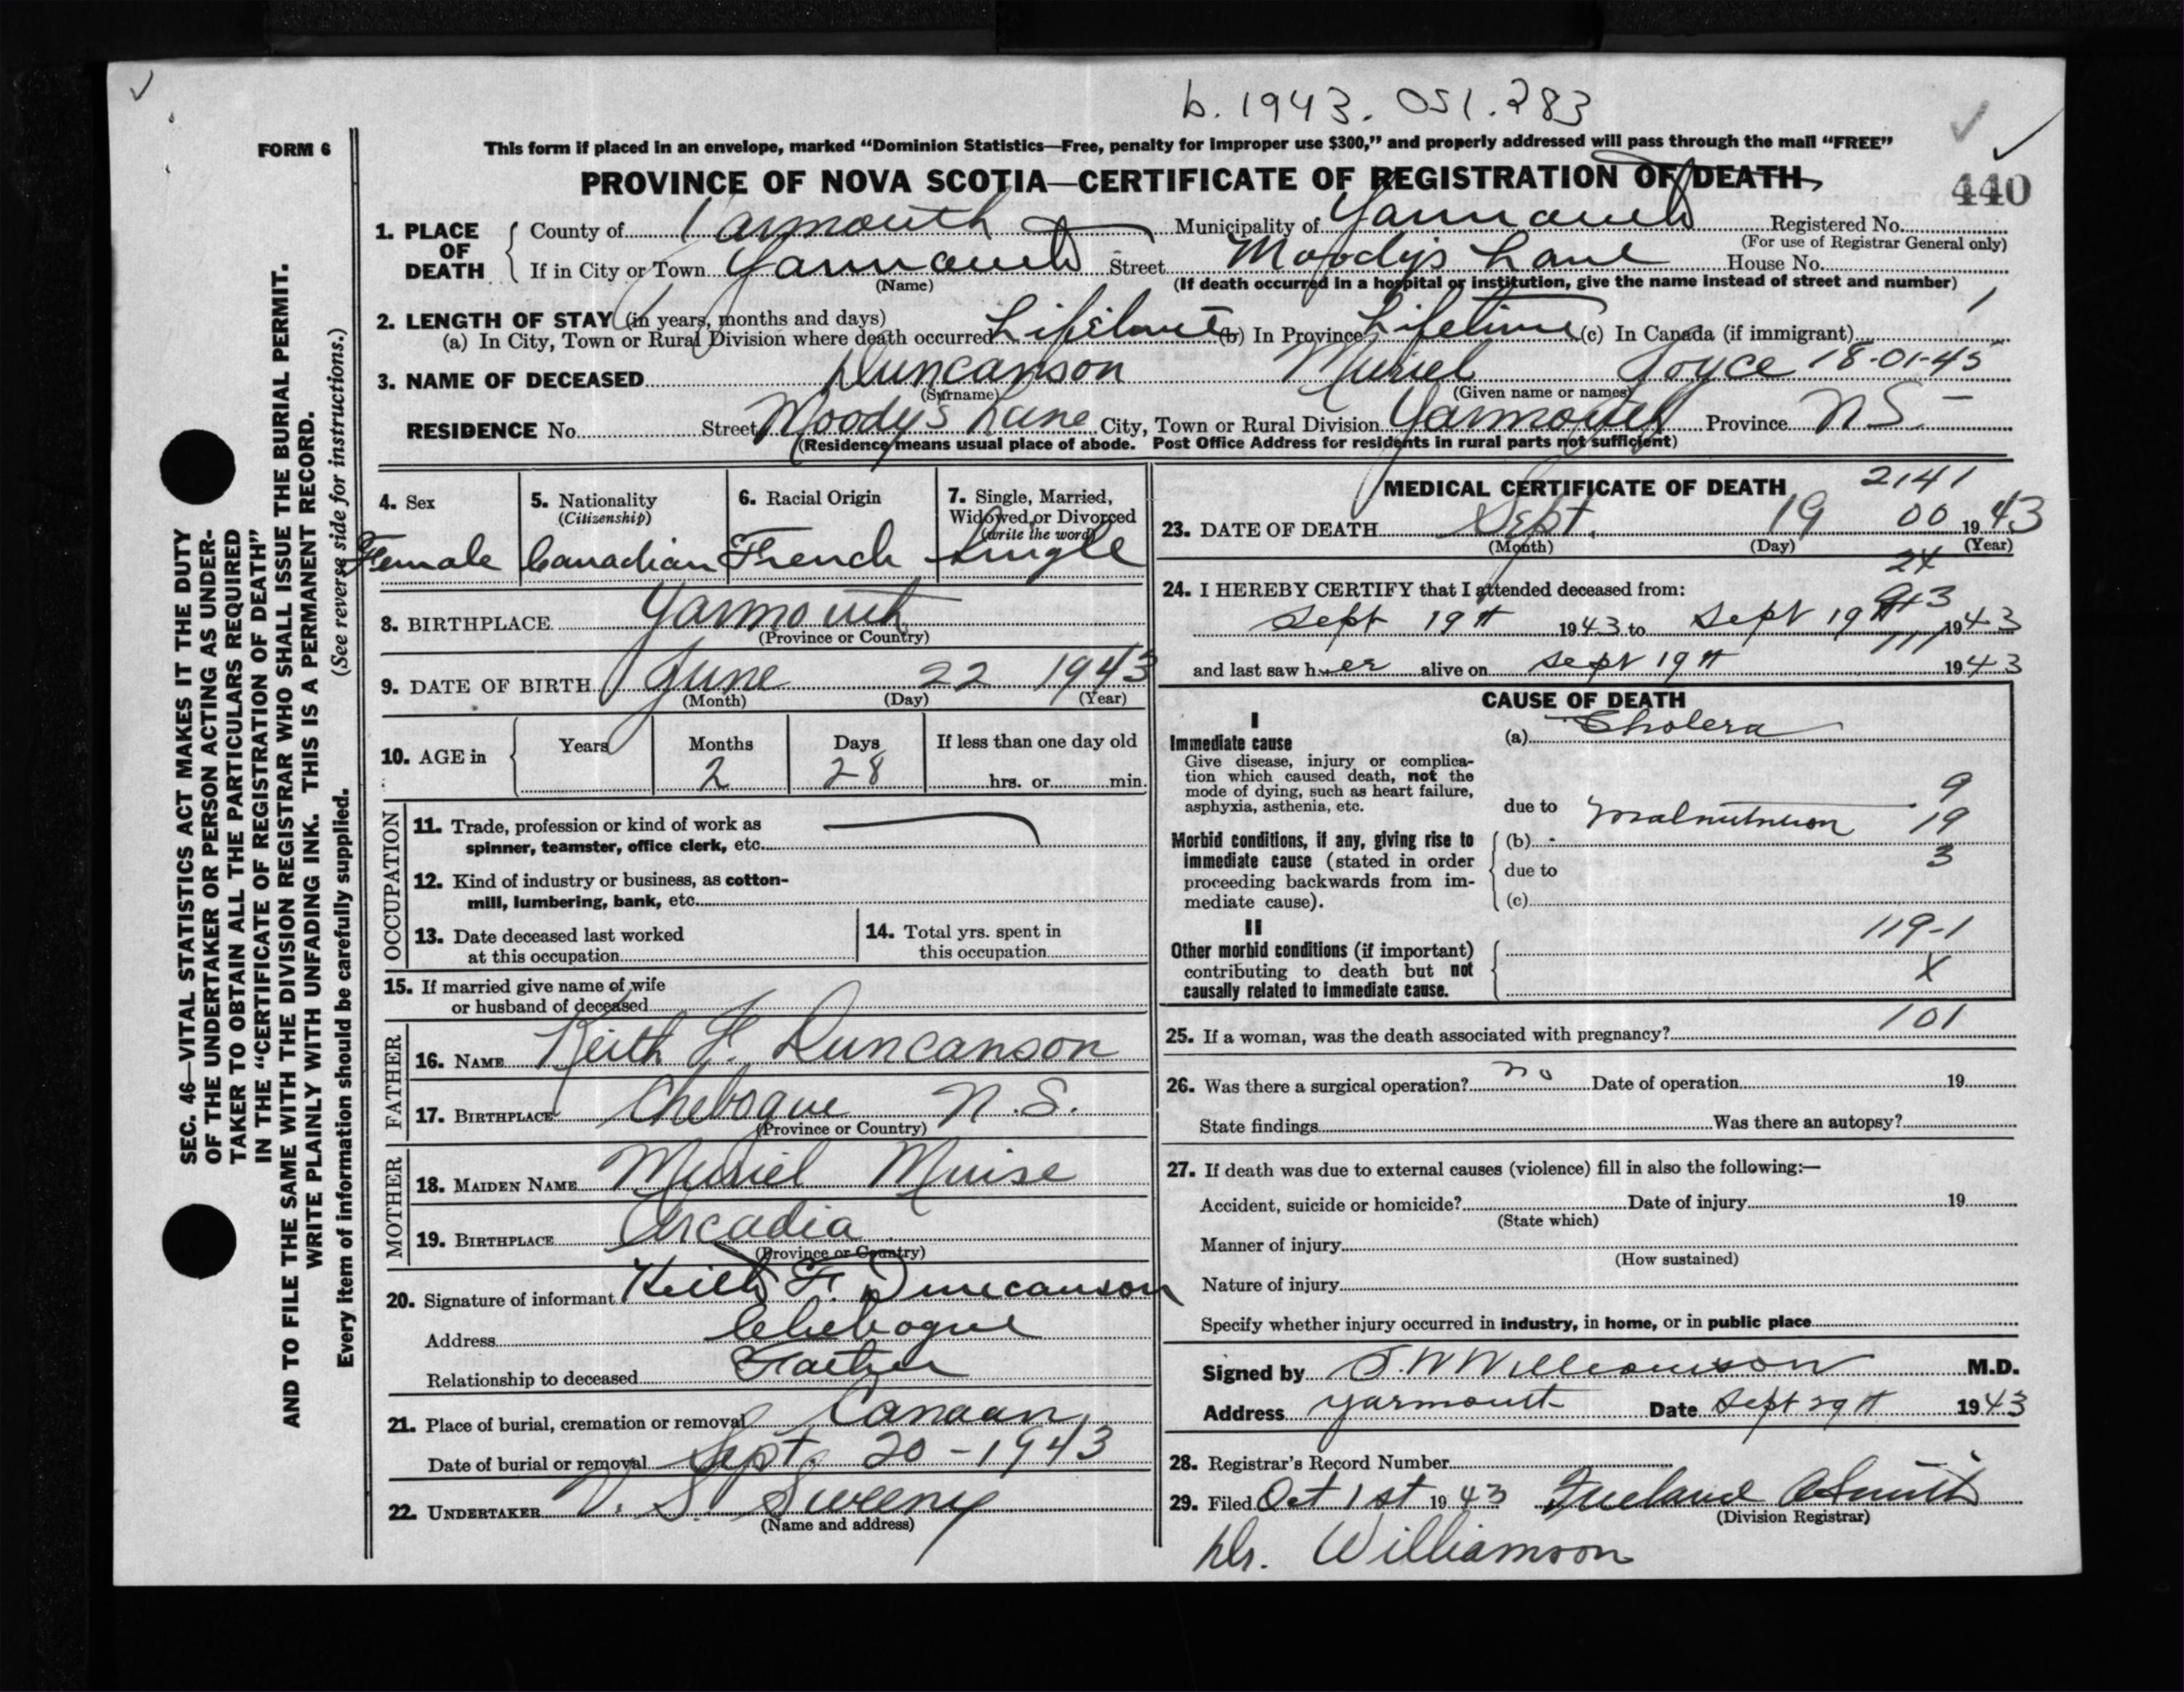 b. 1943. 051. 283
FORM 6
This form if placed in an envelope, marked "Dominion Statistics—Free, penalty for improper use $300," and properly addressed will pass through the mail "FREE"
PROVINCE OF NOVA SCOTIA—CERTIFICATE OF REGISTRATION OF DEATH
440
1. PLACE OF DEATH
County of Yarmouth Municipality of Yarmouth Registered No.
(For use of Registrar General only)
If in City or Town Yarmouth Street Moodys Lane House No.
(Name) (If death occurred in a hospital or institution, give the name instead of street and number)
2. LENGTH OF STAY (in years, months and days)
(a) In City, Town or Rural Division where death occurred Lifetime (b) In Province Lifetime (c) In Canada (if immigrant)
3. NAME OF DECEASED Duncanson Muriel Joyce 18-01-45
(Surname) (Given name or names)
RESIDENCE No. Street Moody's Lane City, Town or Rural Division Yarmouth Province N.S.
(Residence means usual place of abode. Post Office Address for residents in rural parts not sufficient)
SEC. 46—VITAL STATISTICS ACT MAKES IT THE DUTY
OF THE UNDERTAKER OR PERSON ACTING AS UNDER-
TAKER TO OBTAIN ALL THE PARTICULARS REQUIRED
IN THE "CERTIFICATE OF REGISTRATION OF DEATH"
AND TO FILE THE SAME WITH THE DIVISION REGISTRAR WHO SHALL ISSUE THE BURIAL PERMIT.
WRITE PLAINLY WITH UNFADING INK. THIS IS A PERMANENT RECORD.
Every item of information should be carefully supplied. (See reverse side for instructions.)
4. Sex
Female
5. Nationality
(Citizenship)
Canadian
6. Racial Origin
French
7. Single, Married,
Widowed or Divorced
(write the word)
Single
8. BIRTHPLACE Yarmouth
(Province or Country)
9. DATE OF BIRTH June 22 1943
(Month) (Day) (Year)
10. AGE in
Years Months Days If less than one day old
2 28 hrs. or min.
OCCUPATION
11. Trade, profession or kind of work as
spinner, teamster, office clerk, etc.
12. Kind of industry or business, as cotton-
mill, lumbering, bank, etc.
13. Date deceased last worked
at this occupation
14. Total yrs. spent in
this occupation
15. If married give name of wife
or husband of deceased
FATHER
16. NAME Keith F. Duncanson
17. BIRTHPLACE Chebogue N.S.
(Province or Country)
MOTHER
18. MAIDEN NAME Muriel Muise
19. BIRTHPLACE Arcadia
(Province or Country)
20. Signature of informant Keith F. Duncanson
Address Chebogue
Relationship to deceased Father
21. Place of burial, cremation or removal Canaan
Date of burial or removal Sept. 20 - 1943
22. UNDERTAKER V. S. Sweeny
(Name and address)
MEDICAL CERTIFICATE OF DEATH
2141
23. DATE OF DEATH Sept. 19 00 1943
(Month) (Day) (Year)
24
24. I HEREBY CERTIFY that I attended deceased from:
Sept 19th 1943 to Sept 19th 1943
and last saw her alive on Sept 19th 1943
CAUSE OF DEATH
I
Immediate cause
Give disease, injury or complica-
tion which caused death, not the
mode of dying, such as heart failure,
asphyxia, asthenia, etc.
(a) Cholera
9
due to Malnutrition 19
Morbid conditions, if any, giving rise to
immediate cause (stated in order
proceeding backwards from im-
mediate cause).
(b)
3
due to
(c)
II
119-1
Other morbid conditions (if important)
contributing to death but not
causally related to immediate cause.
X
101
25. If a woman, was the death associated with pregnancy?
26. Was there a surgical operation? no Date of operation 19
State findings Was there an autopsy?
27. If death was due to external causes (violence) fill in also the following:—
Accident, suicide or homicide? Date of injury 19
(State which)
Manner of injury
(How sustained)
Nature of injury
Specify whether injury occurred in industry, in home, or in public place
Signed by T.W Williamson M.D.
Address Yarmouth Date Sept 29th 1943
28. Registrar's Record Number
29. Filed Oct 1st 1943 Freeland A Smith
(Division Registrar)
Dr. Williamson